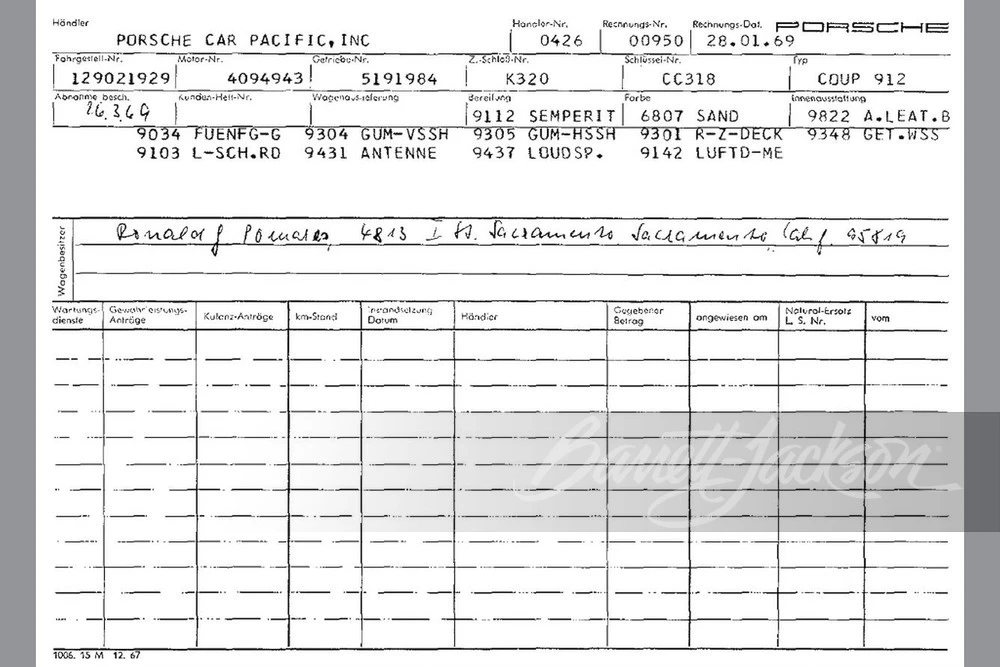 Händler Händler-Nr. Rechnungs-Nr. Rechnungs-Dat. PORSCHE
PORSCHE CAR PACIFIC,INC 0426 00950 28.01.69
Fahrgestell-Nr. Motor-Nr. Getriebe-Nr. Z.-Schloß-Nr. Schlüssel-Nr. Typ
129021929 4094943 5191984 K320 CC318 COUP 912
Abnahme besch. Kunden-Heft-Nr. Wagenauslieferung Bereifung Farbe Innenausstattung
26.3.69 9112 SEMPERIT 6807 SAND 9822 A.LEAT.B
9034 FUENFG-G 9304 GUM-VSSH 9305 GUM-HSSH 9301 R-Z-DECK 9348 GET.WSS
9103 L-SCH.RD 9431 ANTENNE 9437 LOUDSP. 9142 LUFTD-ME
Wagenbesitzer
Ronald J 4813 I St. Sacramento Sacramento Calif. 95819
Wartungs- Gewährleistungs- Kulanz-Anträge km-Stand Instandsetzung Händler Gegebener angewiesen am Natural-Ersatz vom
dienste Anträge Datum Betrag L. S. Nr.
Barrett-Jackson
1006. 15 M 12. 67